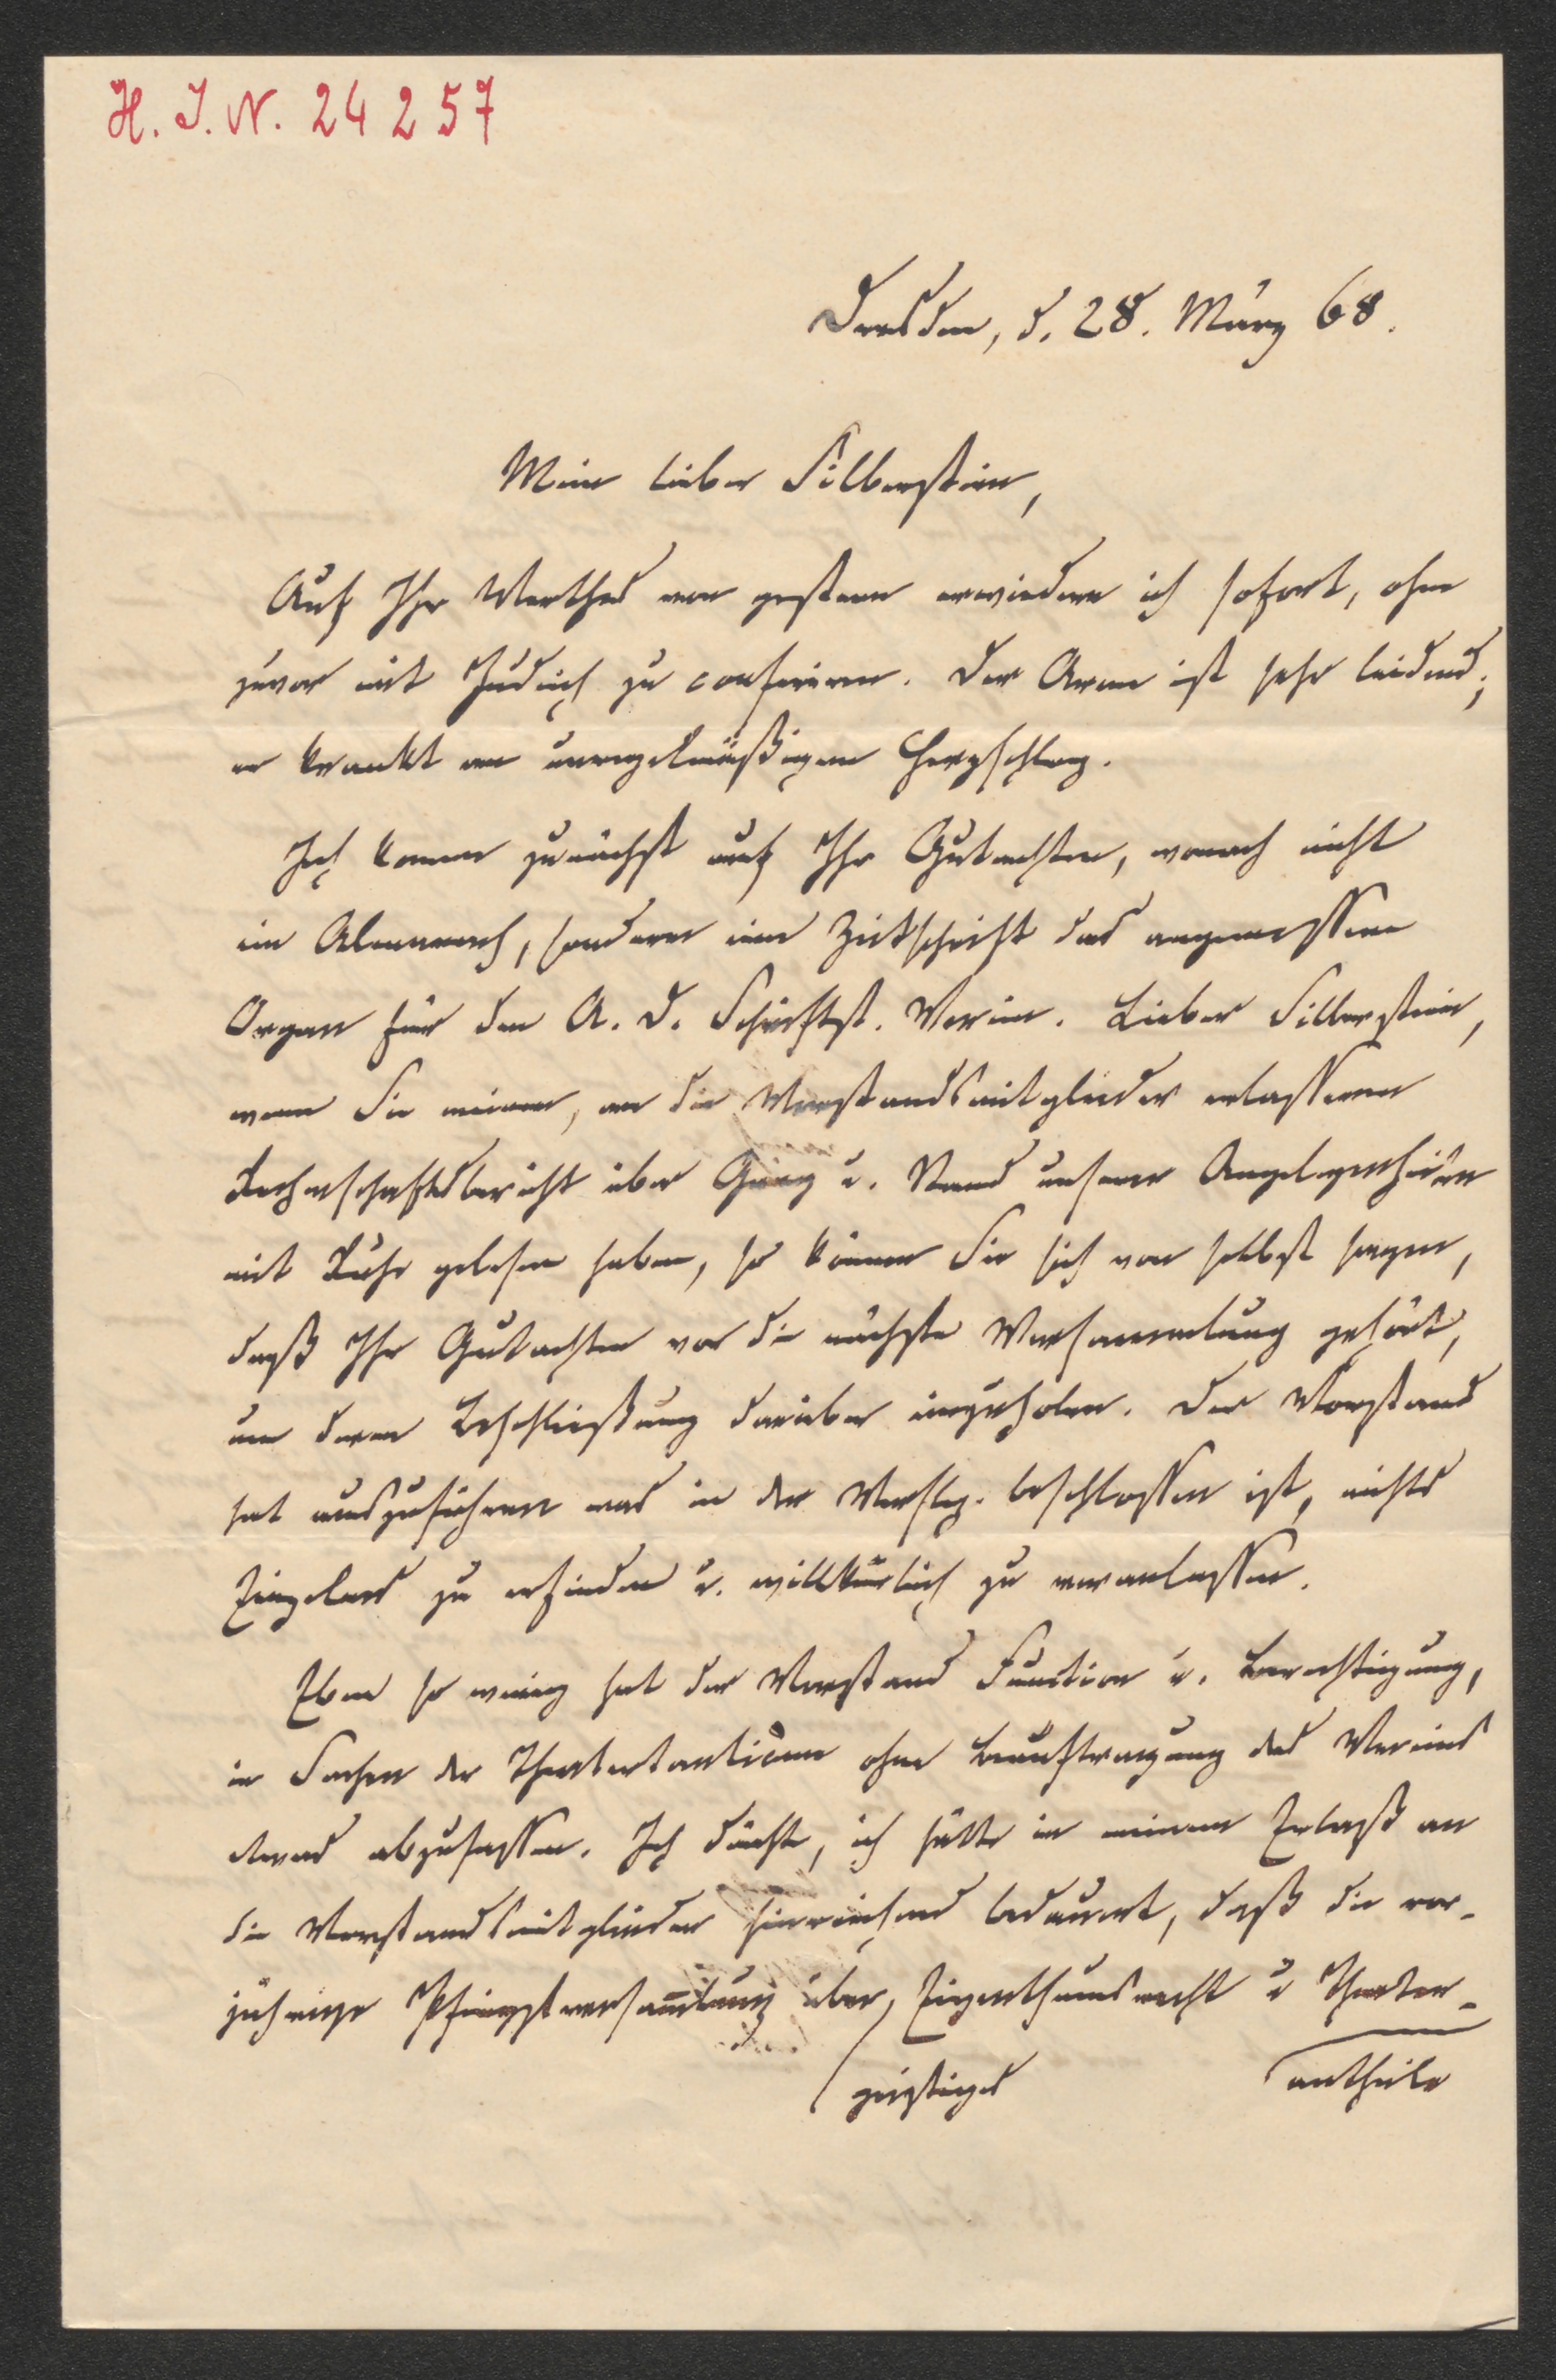 H. I. N. 24257
Dresden, d. 28. März 68.
Mein lieber Silberstein,
Auf Ihr Werthes von gestern erwiedere ich sofort, ohne
zuvor mit Judeich zu conferiren. Der Arme ist sehr leidend;
er krankt an unregelmäßigem Herzschlag.
Ich komme zunächst auf Ihr Gutachten, wonach nicht
ein Almanach, sondern eine Zeitschrift das angemessene
Organ für den A. D. Schriftst. Verein. Lieber Silberstein,
wenn Sie meinen, an die Vorstandsmitglieder erlassenen
Rechenschaftsbericht über Gang u. Stand unserer Angelegenheiten
mit Ruhe gelesen haben, so können Sie sich von selbst sagen,
daß Ihr Gutachten vor die nächste Versammlung gehört,
um deren Beschließung darüber einzuholen. Der Vorstand
hat auszuführen was in der Verslg. beschlossen ist, nichts
Einzelnes zu erfinden u. willkürlich zu veranlassen.
Eben so wenig hat der Vorstand Function u. Berechtigung,
in Sachen der Theatertantiemen ohne Beauftragung des Vereins
etwas abzufassen. Ich dächte, ich hätte in meinem Erlaß an
die Vorstandsmitglieder hinreichend bedauert, daß die vor-
jährige Pfingstversammlung über Eigenthumsrecht u Theater-
geistiges antheile